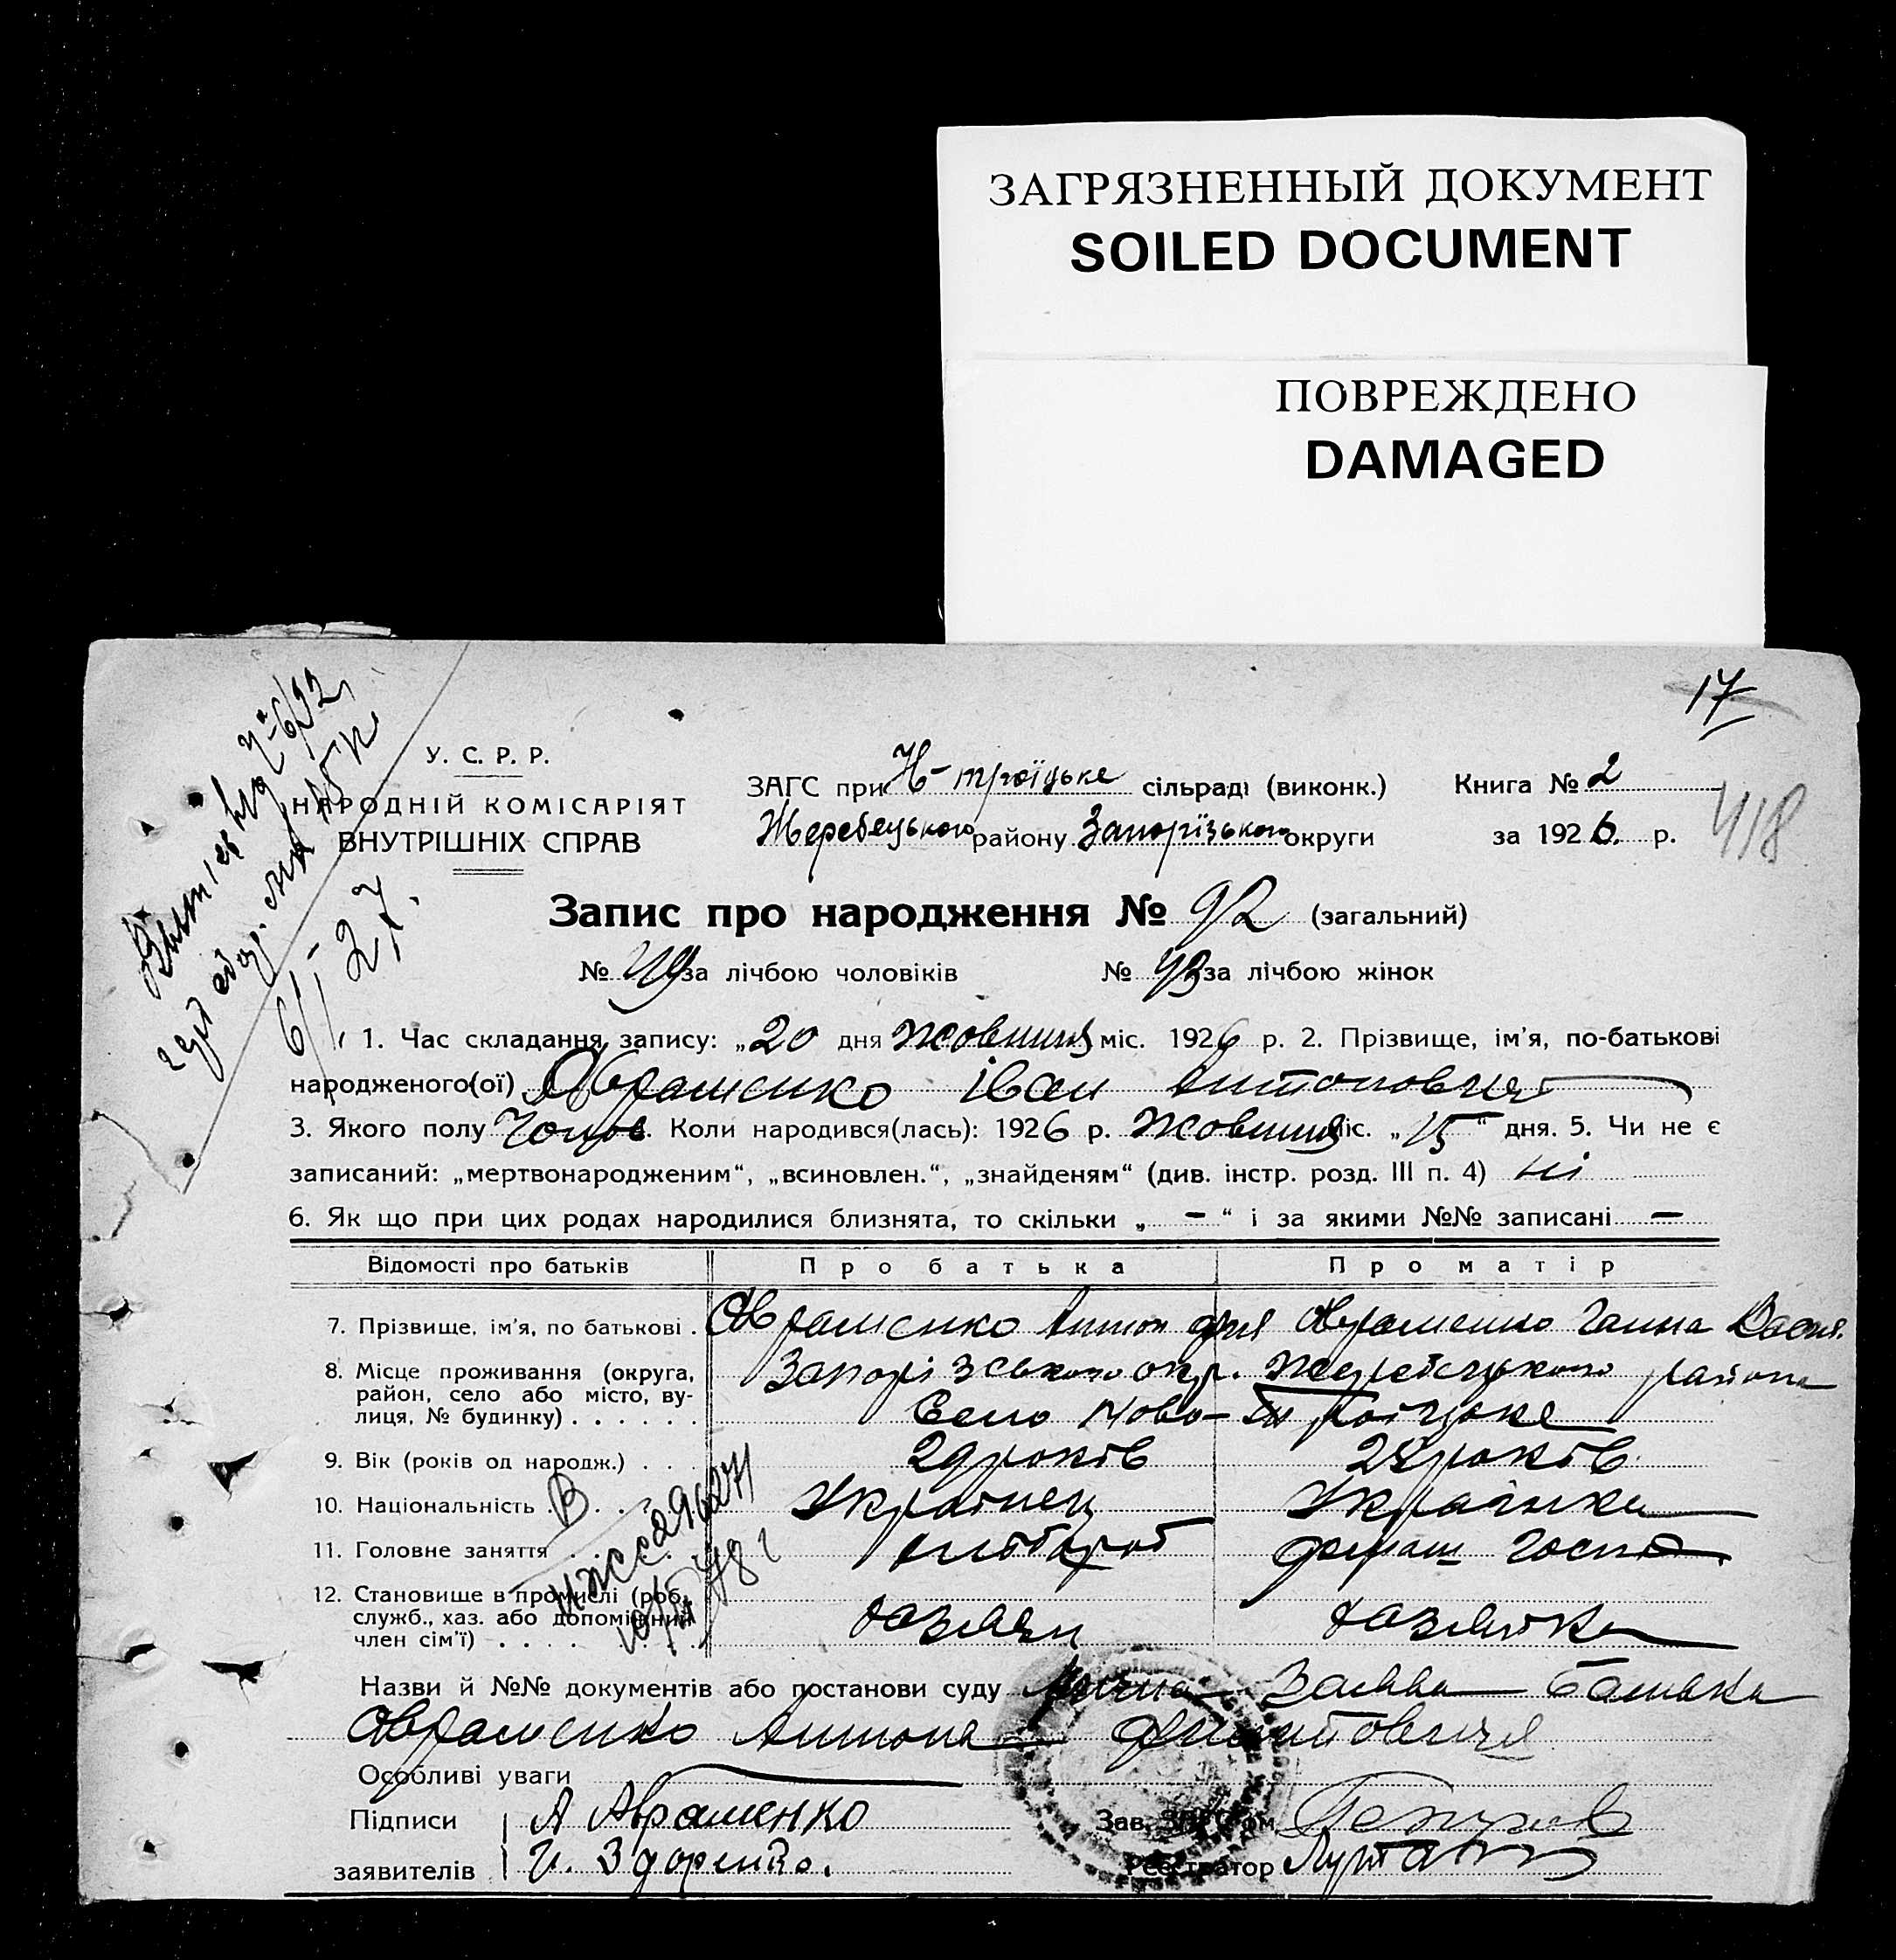 ЗАГРЯЗНЕННЫЙ ДОКУМЕНТ
SOILED DOCUMENT
ПОВРЕЖДЕНО
DAMAGED
17
418
У. С. Р. Р.
НАРОДНІЙ КОМІСАРІЯТ
ВНУТРІШНІХ СПРАВ
ЗАГС при Н-троїцьке сільраді (виконк.) Книга № 2
Жеребецького району Запорізького округи за 1926. р.
Запис про народження № 92 (загальний)
№ 49 за лічбою чоловіків № 43 за лічбою жінок
1. Час складання запису: „20 дня Жовтня міс. 1926 р. 2. Прізвище, ім'я, по-батькові
народженого(ої) Авраменко Іван Антонович
3. Якого полу Чолов. Коли народився(лась): 1926 р. Жовтня міс. „15“ дня. 5. Чи не є
записаний: „мертвонародженим“, „всиновлен.“, „знайденям“ (див. інстр. розд. III п. 4) ні
6. Як що при цих родах народилися близнята, то скільки „ – “ і за якими №№ записані –
Відомості про батьків Про батька Про матір
7. Прізвище, ім'я, по батькові . Авраменко Антон Авраменко Ганна Васил.
8. Місце проживання (округа, Запорізького окр. Жеребецького района
район, село або місто, ву- Село Ново-троіцьке
лиця, № будинку) . . . . . .
9. Вік (років од народж.) . . . 29 років 28 років
10. Національність . . . . Українец Українка
11. Головне заняття . . . . хлібороб домаш госп
12. Становище в промислі (роб.,
служб., хаз. або допоміжний хазяин хазяйка
член сім'ї) . . . .
Назви й №№ документів або постанови суду Заява батька
Авраменко Антона
Особливі уваги
Підписи А Авраменко Зав. ЗАГС'ом
заявителів Реєстратор